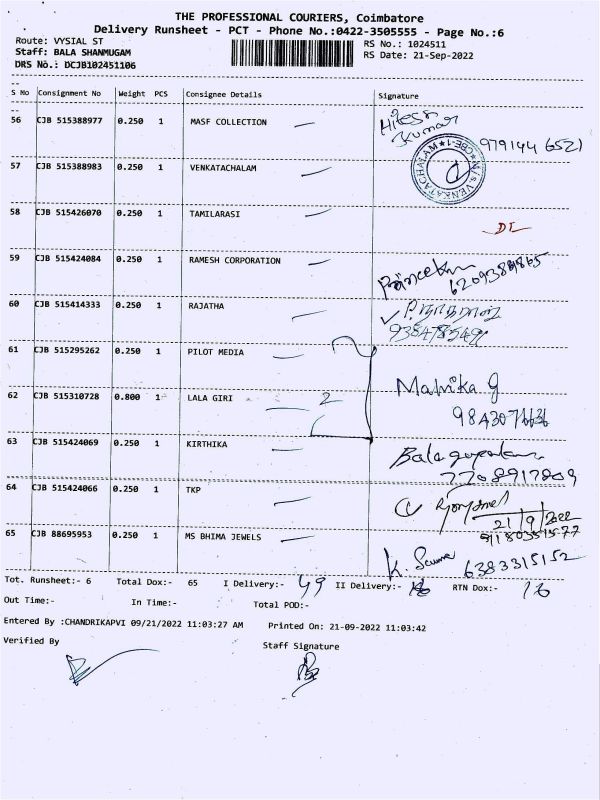 THE PROFESSIONAL COURIERS, Coimbatore
Delivery Runsheet - PCT - Phone No.:0422-3505555 - Page No.:6
Route: VYSIAL ST
RS No.: 1024511
Staff: BALA SHANMUGAM
RS Date: 21-Sep-2022
DRS No.: DCJB102451106
S No Consignment No Weight PCS Consignee Details Signature
56 CJB 515388977 0.250 1 MASF COLLECTION Hitesh Kumar
979144 6521
57 CJB 515388983 0.250 1 VENKATACHALAM
M/s VENKATACHALAM ★ CBE-1 ★
58 CJB 515426070 0.250 1 TAMILARASI
59 CJB 515424084 0.250 1 RAMESH CORPORATION
60 CJB 515414333 0.250 1 RAJATHA
61 CJB 515295262 0.250 1 PILOT MEDIA
62 CJB 515310728 0.800 1 LALA GIRI 2
63 CJB 515424069 0.250 1 KIRTHIKA
7708917809
64 CJB 515424066 0.250 1 TKP
21/9/2022
65 CJB 88695953 0.250 1 MS BHIMA JEWELS
6383315152
Tot. Runsheet:- 6 Total Dox:- 65 I Delivery:- 49 II Delivery:- RTN Dox:- 16
Out Time:- In Time:- Total POD:-
Entered By :CHANDRIKAPVI 09/21/2022 11:03:27 AM Printed On: 21-09-2022 11:03:42
Verified By
Staff Signature